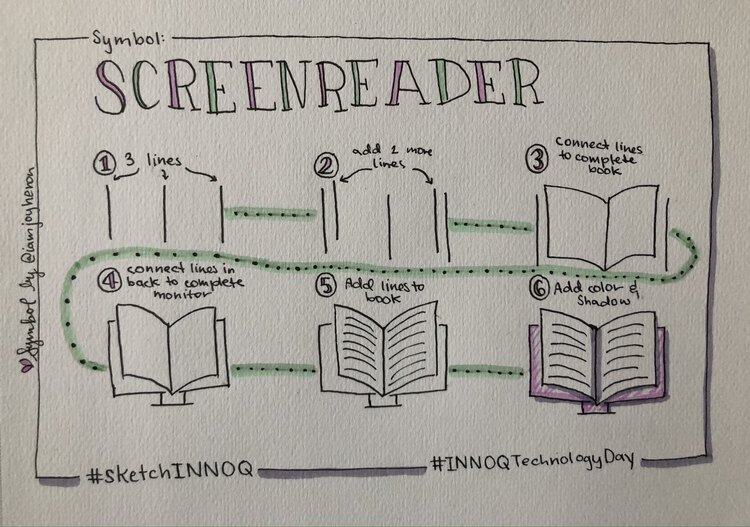 Symbol:
SCREENREADER
1 3 lines
2 add 2 more
lines
3 connect lines
to complete
book
4 connect lines in
back to complete
monitor
5 Add lines to
book
6 Add color &
Shadow
Symbol by @iamjoyheron
#sketchINNOQ
#INNOQTechnologyDay